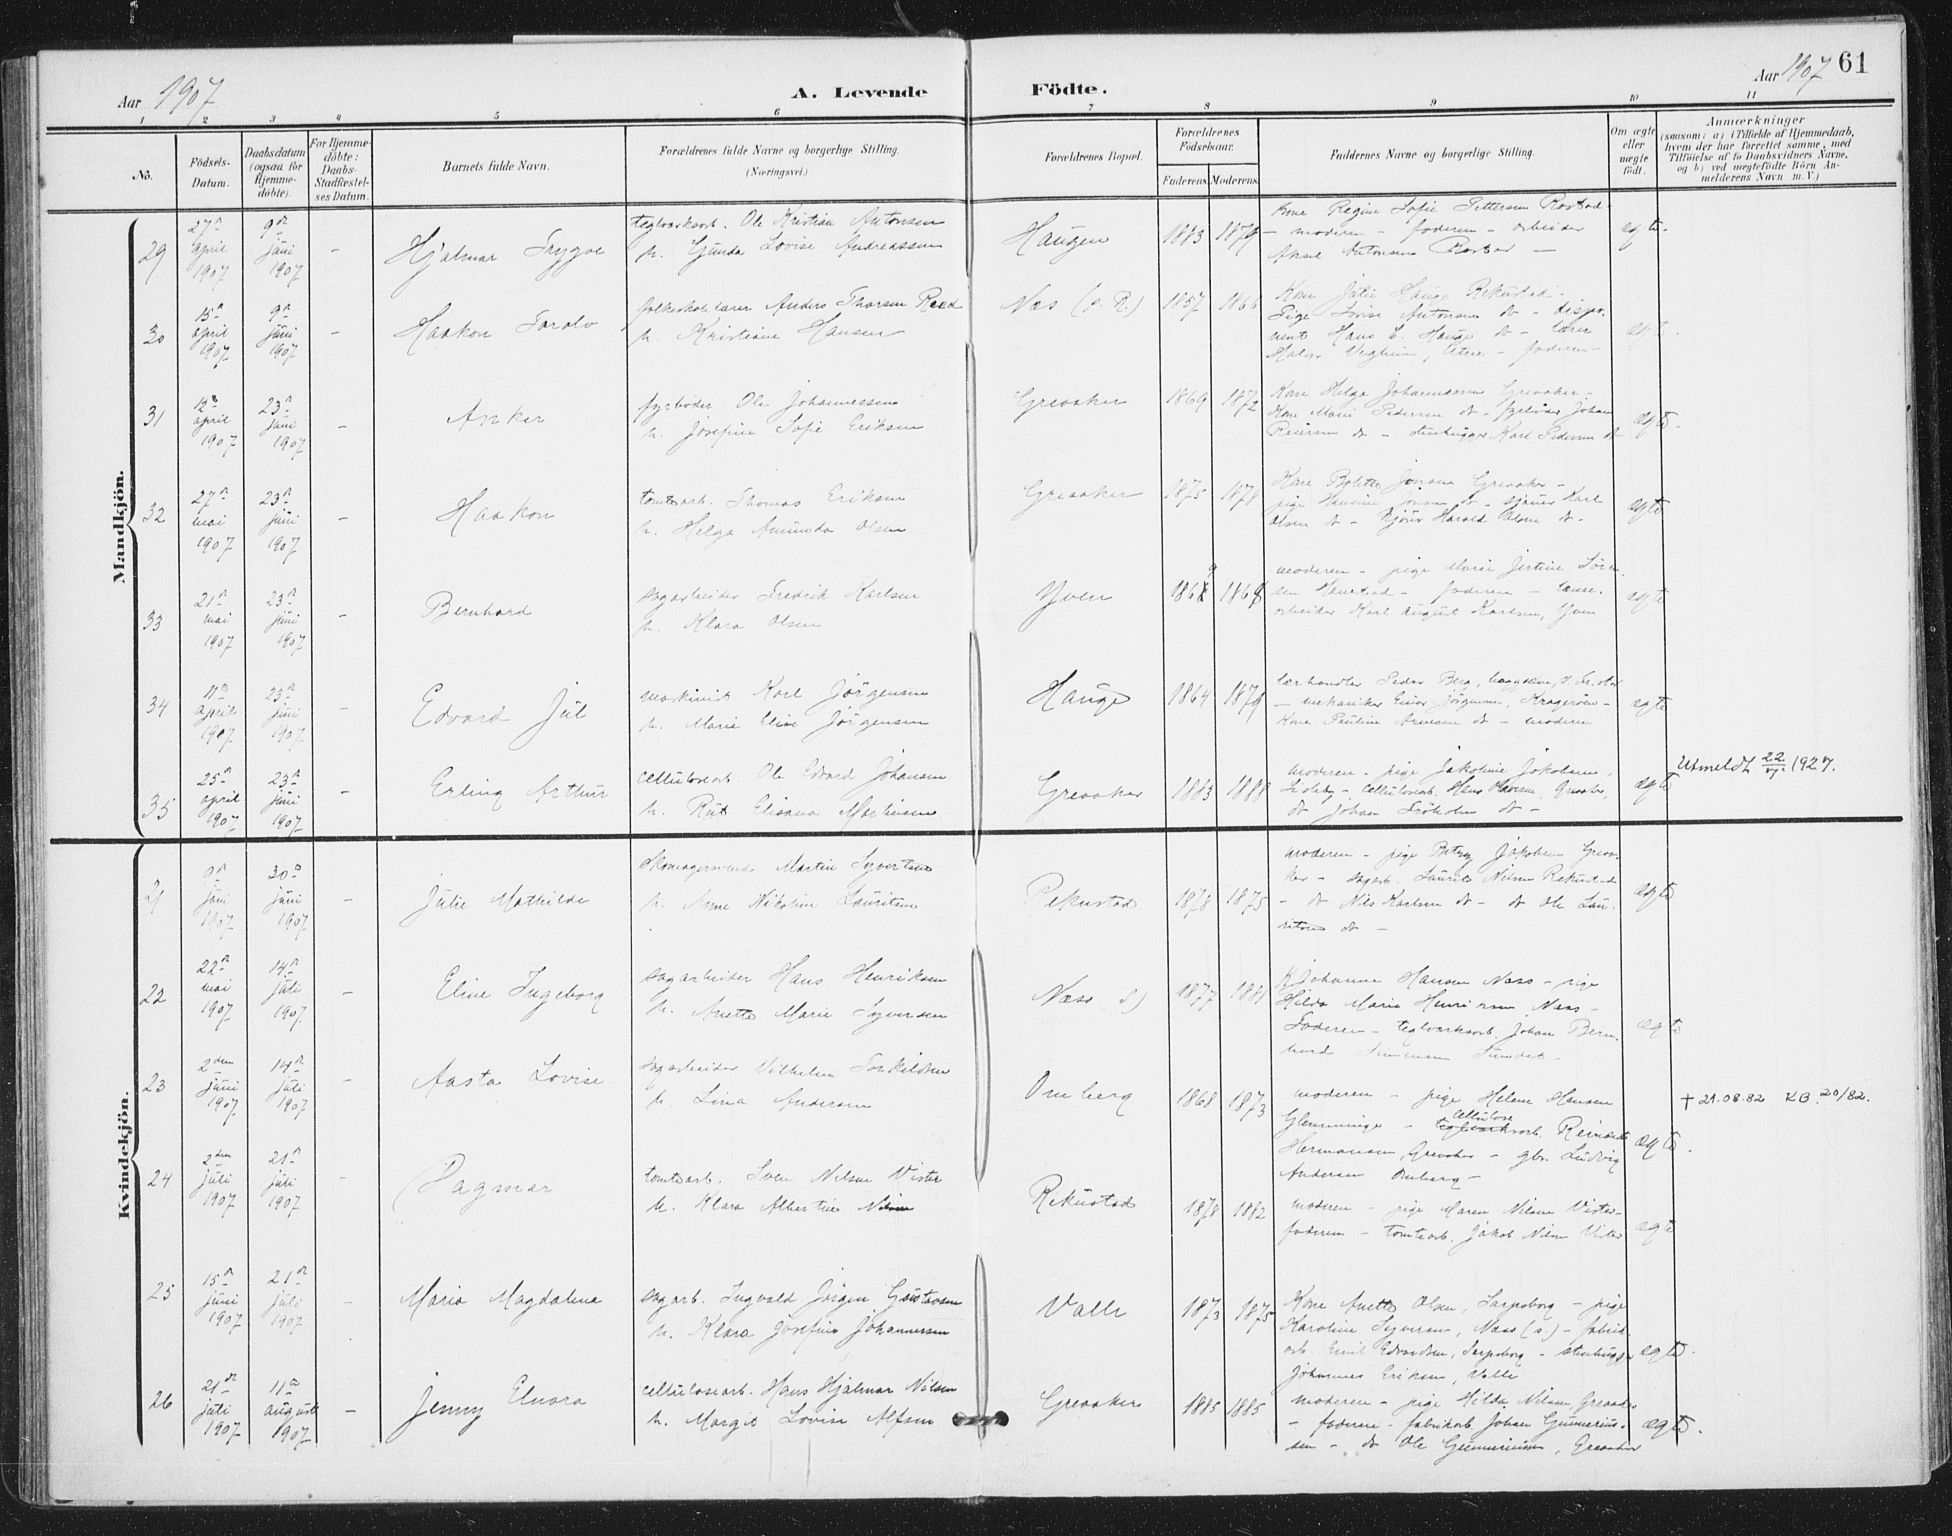 Aar 1907
A. Levende Födte.
Aar 1907 61
1 2 3 4 5 6 7 8 9 10 11
No.
Födsels-
Datum.
Daabsdatum
(ogsaa for
Hjemme-
döbte).
For Hjemme-
döbte:
Daabs-
Stadfæstel-
ses Datum.
Barnets fulde Navn.
Forældrenes fulde Navne og borgerlige Stilling.
(Næringsvei.)
Forældrenes Bopæl.
Forældrenes
Födselsaar.
Faderens. Moderens.
Faddernes Navne og borgerlige Stilling.
Om ægte
eller
uægte
födt.
Anmærkninger
(saasom: a) i Tilfælde af Hjemmedaab,
hvem der har forrettet samme, med
Tilföielse af to Daabsvidners Navne,
og b) ved uægtefödte Börn An-
melderens Navn m. V.)
Mandkjön.
29
27de april 1907
9de juni 1907
–
Hjalmar Trygve
teglverksarb. Ole Kristian Antonsen
h. Gunda Lovise Andreassen
Haugen
1883 1879
Kone Regine Sofie Pettersen Rostad
– moderen – faderen – arbeider
Aksel Antonsen Rostad –
egte.
30
15de april 1907
9de juni 1907
–
Haakon Toralv
folkeskolelærer Anders Thorsen Reed
h. Kristiane Hansen
Næs (s. R.)
1857 1866
Kone Julie Hauge Rekustad –
Pige Lovise Antonsen do – dispo-
nent Hans C. Hauge do – lærer
Halvor Vegheim, – faderen –
egte.
31
12te april 1907
23de juni 1907
–
Anker
fyrböder Ole Johannessen
h. Josefine Sofie Eriksen
Greaaker
1869 1872
Kone Helga Johannessen Greaaker –
Kone Marie Pedersen do – fyrböder Johan
Reiersen do – stenhugger Karl Pedersen do
egte.
32
27de mai 1907
23de juni 1907
–
Haakon
tomtearb. Thomas Eriksen
h. Helga Amunda Olsen
Greaaker
1875 1878
Kone Bolette Jonsen Greaaker –
pige Hansine Jonsen do – sjauer Karl
Olsen do – Harald Olsen do –
egte
33
21de mai 1907
23de juni 1907
–
Bernhard
sagarbeider Fredrik Karlsen
h. Klara Olsen
Yven
1869 1868
moderen – pige Marie Jertine Sören-
sen Hanestad – faderen – lænse-
arbeider Karl August Karlsen, Yven
egte
34
11te april 1907
23de juni 1907
–
Edvard Jul
maskinist Karl Jörgensen
h. Marie Elise Jörgensen
Hauge
1864 1879
lærhandler Peder Berg,
– mekaniker Einar Jörgensen, Krageröen –
Kone Pauline Arnesen do – moderen
egte
35
25de april 1907
23de juni 1907
–
Erling Arthur
cellulosearb. Ole Edvard Johansen
h. Rut Elisana Martinsen
Greaaker
1883 1888
moderen – pige Jakobine Jakobsen,
Lisleby – cellulosearb. Hans Hansen, Greaaker,
do Johan Fröholm do –
egte
Utmeldt 22/7 1927.
Kvindekjön.
21
9de juni 1907
30te juni 1907
–
Julie Mathilde
skomagersvend Martin Syvertsen
h. Anne Nikoline Lauritsen
Rekustad
1878 1875
moderen – pige Betzy Jakobsen Greaa-
ker – sagarb. Laurits Nilsen Rekustad
– do Nils Karlsen do – do Ole Lau-
ritsen do –
egte
22
22de mai 1907
14de juli 1907
–
Eline Ingeborg
sagarbeider Hans Henriksen
h. Anette Marie Syversen
Næss (s.)
1877 1881
K Johanne Hansen Næss – pige
Hilda Marie Henriksen Næss –
Faderen – teglverksarb. Johan Bern-
hard Simensen Sundet –
egte
23
2den juni 1907
14de juli 1907
–
Aasta Lovise
sagarbeider Vilhelm Torkildsen
h. Lina Andersen
Omberg
1868 1873
moderen – pige Helene Hansen
Glemminge – cellulosearb. Reinert
Hermansen, Greaaker – gbr. Ludvig
Andersen Omberg –
egte.
† 21.08.82 KB. 20/82.
24
2den juli 1907
21de juli 1907
–
Dagmar
tomtearb. Sven Nilsen Vister
h. Klara Albertine Nilsen
Rekustad
1878 1882
moderen – pige Maren Nilsen Vister –
faderen – tomtearb. Jakob Nilsen Vister
egte
25
15de juni 1907
21de juli 1907
–
Maria Magdalena
sagarb. Ingvald Jörgen Gustavsen
h. Klara Josefine Johannessen
Valle
1873 1875
Kone Anette Olsen, Sarpsborg – pige
Karoline Syversen, Næss (s.) – fabrik-
arb. Emil Edvardsen, Sarpsborg – stenhugger
Johannes Eriksen, Valle
egte.
26
21de juli 1907
11te august 1907
–
Jenny Elnora
cellulosearb. Hans Hjalmar Nilsen
h. Margit Lovise Alfsen
Greaaker
1885 1885
moderen – pige Hilda Nilsen, Greaaker
– faderen – fabrikarb. Johan Gunnerius-
sen – do Ole Gunneriussen, Greaaker
egte.